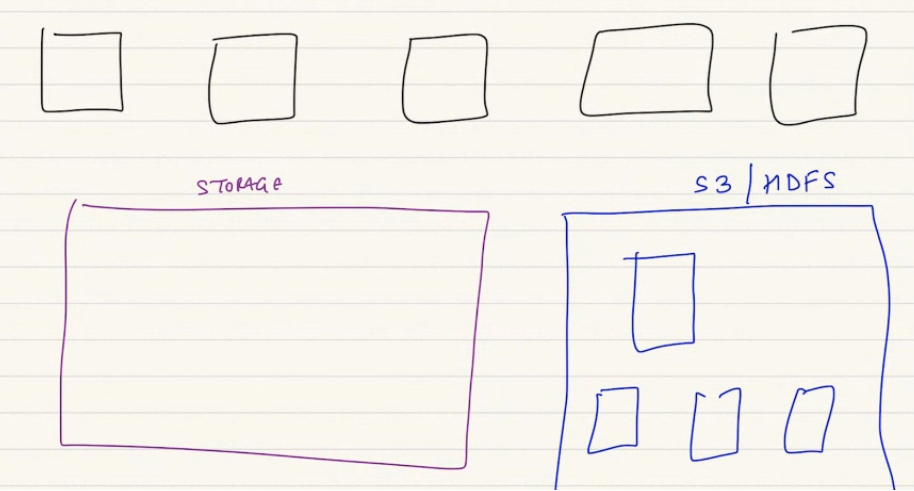 STORAGE
S3 | HDFS